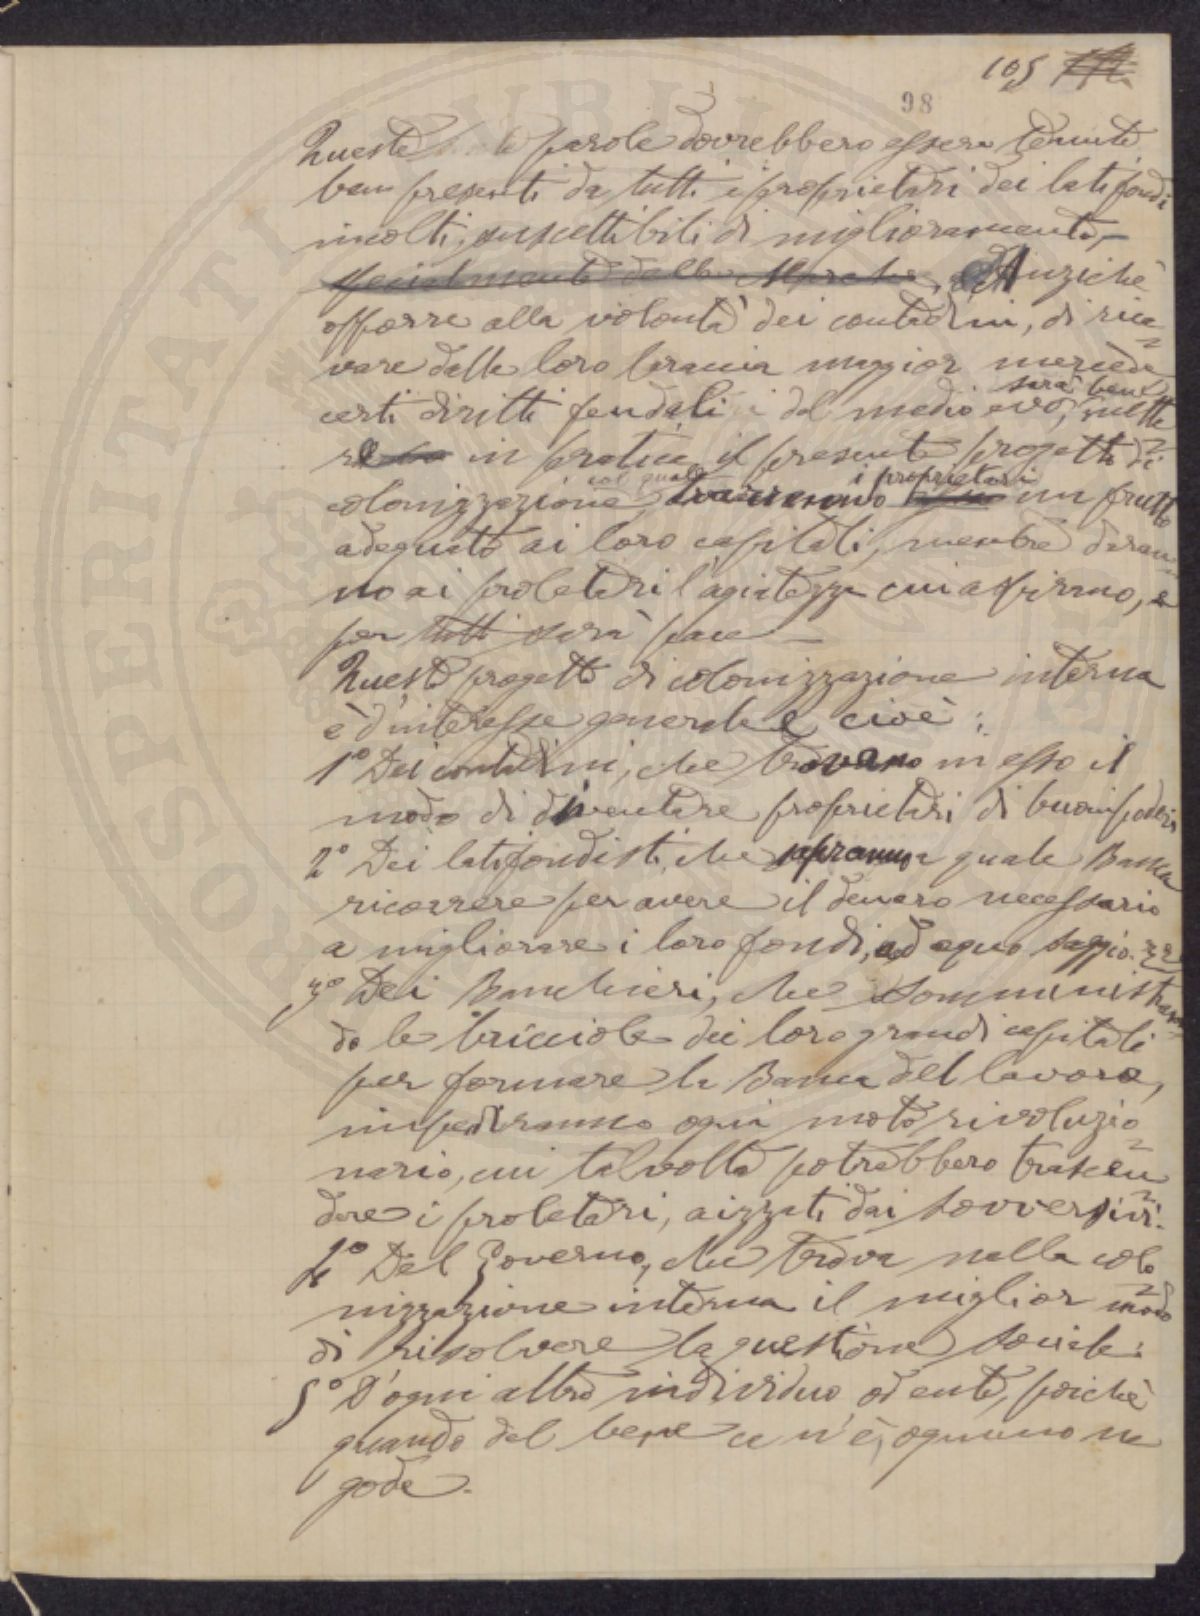 105
98
Queste parole dovrebbero essere tenute
ben presenti da tutti i proprietari dei latifondi
incolti, suscettibili di miglioramento,
specialmente delle Marche, Anziché
opporre alla volontà dei contadini, di rica-
vare dalle loro braccia maggior mercede
certi diritti feudali del medio evo, sarà bene mette
re in pratica il presente progetto di
colonizzazione col quale trarranno i proprietari un frutto
adeguato ai loro capitali, mentre daran-
no ai proletari l'agiatezza cui aspirano, e
per tutti sarà pace —
Questo progetto di colonizzazione interna
è d'interesse generale e cioè:
1° Dei contadini, che trovano in esso il
modo di diventare proprietari di buoni poderi
2° Dei latifondisti, che sapranno a quale Banca
ricorrere per avere il denaro necessario
a migliorare i loro fondi, ad equo saggio.
3° Dei Banchieri, che somministran-
do le bricciole dei loro grandi capitali
per formare la Banca del lavoro,
impediranno ogni moto rivoluzio-
nario, cui talvolta potrebbero trascen-
dere i proletari, aizzati dai sovversivi.
4° Del Governo, che trova nella colo-
nizzazione interna il miglior modo
di risolvere la questione sociale:
5° D'ogni altro individuo od ente, poichè
quando del bene ce n'è, ognuno ne
gode.